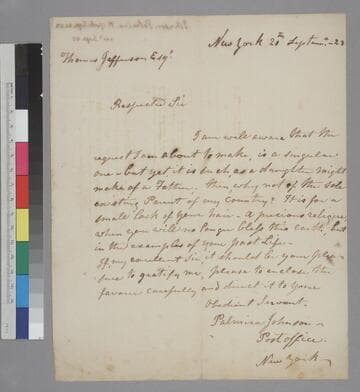 New York 20th Septemr. - 23
Thomas Jefferson Esqr
Respected Sir
I am well aware that the
request I am about to make, is a singular
one - but yet it is such as a daughter might
make of a Father. then why not of the sole
existing Parent of my Country? It is for a
small lock of your hair - A precious relique
when you will no longer bless this earth, but
in the examples of your past Life.
If, my excellent Sir, it should be your plea-
sure to gratify me, please to enclose the
favour carefully and direct it to your
Obedient Servant.
Palmira Johnson -
Post office.
New York